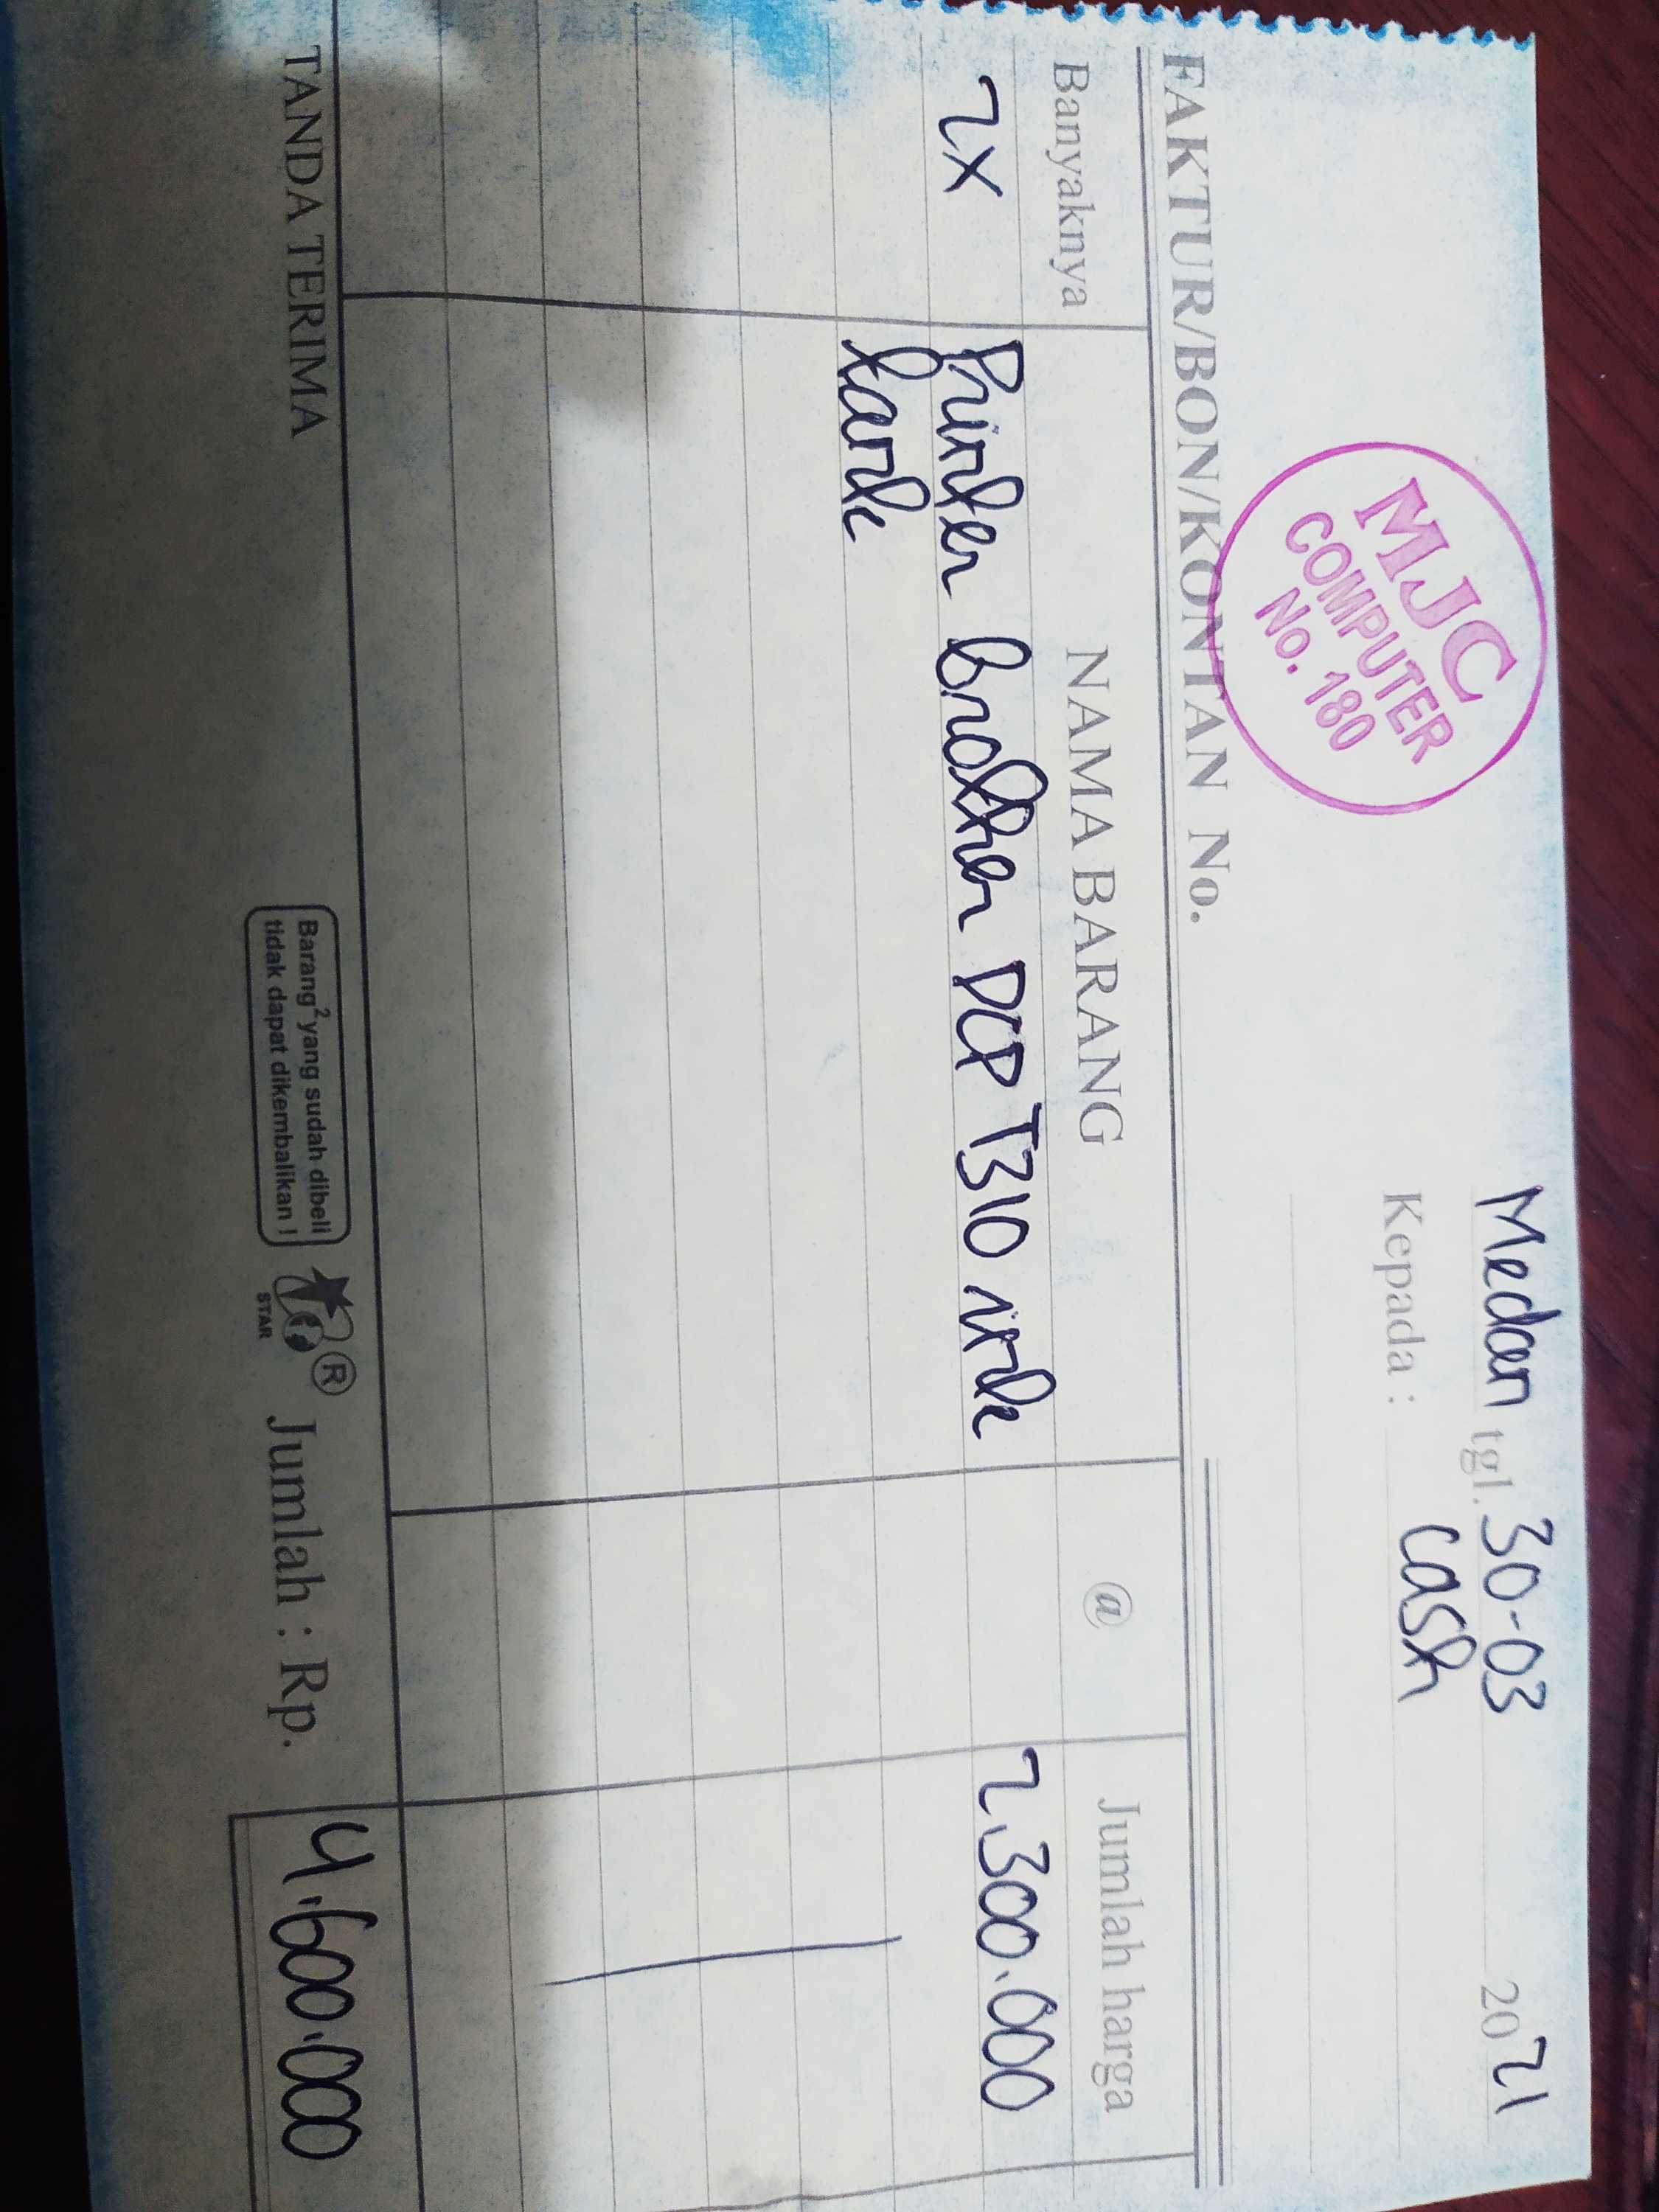 Medan tgl. 30-03 2021
Kepada : cash
MJC
COMPUTER
No. 180
FAKTUR/BON/KONTAN No.
Banyaknya NAMA BARANG @ Jumlah harga
2x Printer brother DCP T310 ink 2.300.000
tank
TANDA TERIMA
Barang² yang sudah dibeli
tidak dapat dikembalikan !
STAR
®
Jumlah : Rp. 4.600.000